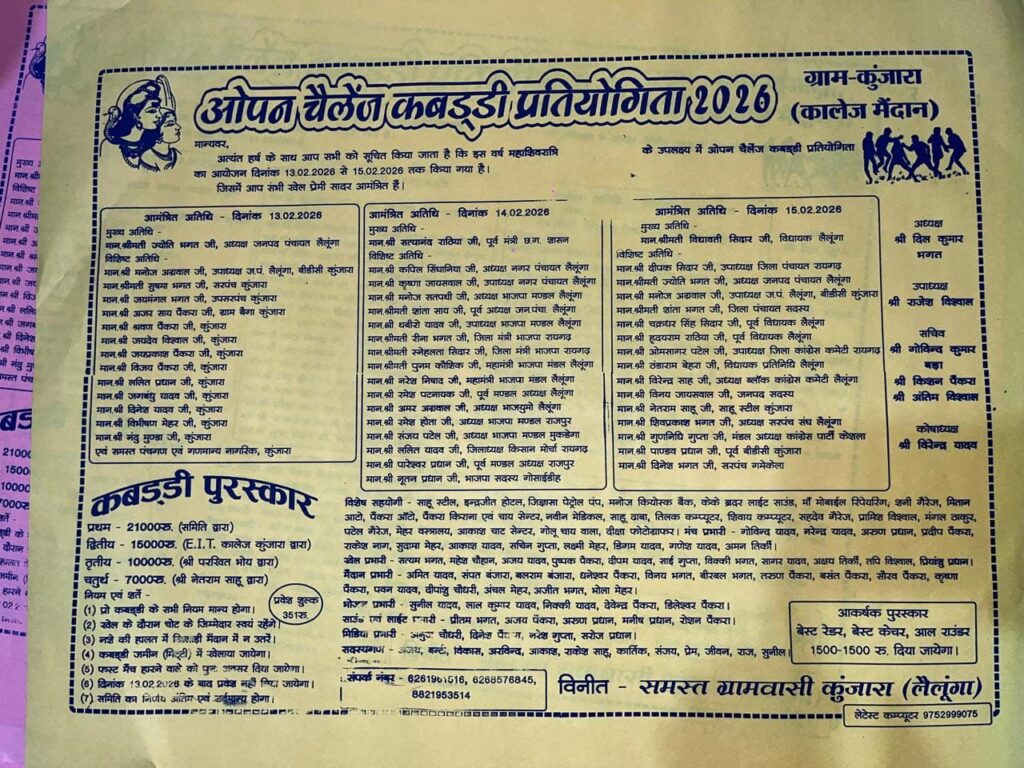 ओपन चैलेंज कबड्डी प्रतियोगिता 2026
ग्राम-कुंजारा
(कालेज मैंदान)
मान्यवर,
अत्यंत हर्ष के साथ आप सभी को सूचित किया जाता है कि इस वर्ष महाशिवरात्रि के उपलक्ष्य में ओपन चैलेंज कबड्डी प्रतियोगिता
का आयोजन दिनांक 13.02.2026 से 15.02.2026 तक किया गया है।
जिसमें आप सभी खेल प्रेमी सादर आमंत्रित हैं।
आमंत्रित अतिथि - दिनांक 13.02.2026
मुख्य अतिथि -
मान.श्रीमती ज्योति भगत जी, अध्यक्ष जनपद पंचायत लैलूंगा
विशिष्ट अतिथि -
मान.श्री मनोज अग्रवाल जी, उपाध्यक्ष ज.पं. लैलूंगा, बीडीसी कुंजारा
मान.श्रीमती सुषमा भगत जी, सरपंच कुंजारा
मान.श्री जयमंगल भगत जी, उपसरपंच कुंजारा
मान.श्री अजर साय पैंकरा जी, ग्राम बैगा कुंजारा
मान.श्री श्रवण पैंकरा जी, कुंजारा
मान.श्री जयदेव विश्वाल जी, कुंजारा
मान.श्री जयप्रकाश पैंकरा जी, कुंजारा
मान.श्री विजय पैंकरा जी, कुंजारा
मान.श्री ललित प्रधान जी, कुंजारा
मान.श्री जगबंधु यादव जी, कुंजारा
मान.श्री दिनेश यादव जी, कुंजारा
मान.श्री विभीषण मेहर जी, कुंजारा
मान.श्री नंदु मुण्डा जी, कुंजारा
एवं समस्त पंचगण एवं गणमान्य नागरिक, कुंजारा
आमंत्रित अतिथि - दिनांक 14.02.2026
मुख्य अतिथि -
मान.श्री सत्यानंद राठिया जी, पूर्व मंत्री छ.ग. शासन
विशिष्ट अतिथि -
मान.श्री कपिल सिंघानिया जी, अध्यक्ष नगर पंचायत लैलूंगा
मान.श्री कृष्णा जायसवाल जी, उपाध्यक्ष नगर पंचायत लैलूंगा
मान.श्री मनोज सतपथी जी, अध्यक्ष भाजपा मण्डल लैलूंगा
मान.श्रीमती शांता साय जी, पूर्व अध्यक्ष जन.पंचा. लैलूंगा
मान.श्री थबीरो यादव जी, उपाध्यक्ष भाजपा मण्डल लैलूंगा
मान.श्रीमती रीना भगत जी, जिला मंत्री भाजपा रायगढ़
मान.श्रीमती स्नेहलता सिदार जी, जिला मंत्री भाजपा रायगढ़
मान.श्रीमती पुनम कौशिक जी, महामंत्री भाजपा मण्डल लैलूंगा
मान.श्री नरेश निषाद जी, महामंत्री भाजपा मंडल लैलूंगा
मान.श्री रमेश पटनायक जी, पूर्व मण्डल अध्यक्ष लैलूंगा
मान.श्री अमर अग्रवाल जी, अध्यक्ष भाजयुमो लैलूंगा
मान.श्री रमेश होता जी, अध्यक्ष भाजपा मण्डल राजपुर
मान.श्री संजय पटेल जी, अध्यक्ष भाजपा मण्डल मुकडेगा
मान.श्री ललित यादव जी, जिलाध्यक्ष किसान मोर्चा रायगढ़
मान.श्री पारेश्वर प्रधान जी, पूर्व मण्डल अध्यक्ष राजपुर
मान.श्री नूतन प्रधान जी, भाजपा सदस्य गोसाईडीह
आमंत्रित अतिथि - दिनांक 15.02.2026
मुख्य अतिथि -
मान.श्रीमती विद्यावती सिदार जी, विधायक लैलूंगा
विशिष्ट अतिथि -
मान.श्री दीपक सिदार जी, उपाध्यक्ष जिला पंचायत रायगढ़
मान.श्रीमती ज्योति भगत जी, अध्यक्ष जनपद पंचायत लैलूंगा
मान.श्री मनोज अग्रवाल जी, उपाध्यक्ष ज.पं. लैलूंगा, बीडीसी कुंजारा
मान.श्रीमती शांता भगत जी, जिला पंचायत सदस्य
मान.श्री चक्रधर सिंह सिदार जी, पूर्व विधायक लैलूंगा
मान.श्री हृदयराम राठिया जी, पूर्व विधायक लैलूंगा
मान.श्री ओमसागर पटेल जी, उपाध्यक्ष जिला कांग्रेस कमेटी रायगढ़
मान.श्री ठंडाराम बेहरा जी, विधायक प्रतिनिधि लैलूंगा
मान.श्री विरेन्द्र साह जी, अध्यक्ष ब्लॉक कांग्रेस कमेटी लैलूंगा
मान.श्री विनय जायसवाल जी, जनपद सदस्य
मान.श्री नेतराम साहू जी, साहू स्टील कुंजारा
मान.श्री शिवप्रकाश भगत जी, अध्यक्ष सरपंच संघ लैलूंगा
मान.श्री गुणनिधि गुप्ता जी, मंडल अध्यक्ष कांग्रेस पार्टी केशला
मान.श्री पाण्डव प्रधान जी, पूर्व बीडीसी कुंजारा
मान.श्री दिनेश भगत जी, सरपंच गमेकेला
अध्यक्ष
श्री दिल कुमार
भगत
उपाध्यक्ष
श्री राजेश विश्वाल
सचिव
श्री गोविन्द कुमार
बड़ा
श्री किशन पैंकरा
श्री अंतिम विश्वाल
कोषाध्यक्ष
श्री विरेन्द्र यादव
कबड्डी पुरस्कार
प्रथम - 21000रु. (समिति द्वारा)
द्वितीय - 15000रु. (E.I.T. कालेज कुंजारा द्वारा)
तृतीय - 10000रु. (श्री परखित भोय द्वारा)
चतुर्थ - 7000रु. (श्री नेतराम साहू द्वारा)
नियम एवं शर्ते -
(1) प्रो कबड्डी के सभी नियम मान्य होगा।
(2) खेल के दौरान चोट के जिम्मेदार स्वयं रहेंगे।
(3) नशे की हालत में खिलाड़ी मैंदान में न उतरें।
(4) कबड्डी जमीन (मिट्टी) में खेलाया जायेगा।
(5) फस्ट मैंच हारने वाले को पुनः अवसर दिया जायेगा।
(6) दिनांक 13.02.2026 के बाद प्रवेश नहीं दिया जायेगा।
(7) समिति का निर्णय अंतिम एवं सर्वमान्य होगा।
प्रवेश शुल्क
351रु.
विशेष सहयोगी - साहू स्टील, इन्द्रजीत होटल, जिज्ञासा पेट्रोल पंप, मनोज कियोस्क बैंक, केके ब्रदर लाईट साउंड, माँ मोबाईल रिपेयरिंग, शनी गैरेज, मितान
आटो, पैंकरा ऑटो, पैंकरा किराना एवं चाय सेन्टर, नवीन मेडिकल, साहू ढाबा, तिलक कम्प्यूटर, शिवाय कम्प्यूटर, सहदेव गैरेज, प्रामिश विश्वाल, मंगल ठाकुर,
पटेल गैरेज, मेहर वस्त्रालय, आकाश चाट सेन्टर, गोलू चाय वाला, दीक्षा फोटोग्राफर। मंच प्रभारी - गोविन्द यादव, नरेन्द्र यादव, अरुण प्रधान, प्रदीप पैंकरा,
राकेश नाग, सुदामा मेहर, आकाश यादव, सचिन गुप्ता, लक्ष्मी मेहर, डिगम यादव, गणेश यादव, अमन तिर्की।
खेल प्रभारी - सत्यम भगत, महेश चौहान, अजय यादव, पुष्पक पैंकरा, दीपम यादव, साई गुप्ता, विक्की भगत, सागर यादव, अक्षय तिर्की, तपि विश्वाल, प्रियांशु प्रधान।
मैंदान प्रभारी - अमित यादव, संपत बंजारा, बलराम बंजारा, धनेश्वर पैंकरा, विनय भगत, बीरबल भगत, तरुण पैंकरा, बसंत पैंकरा, सौरव पैंकरा, कृष्णा
पैंकरा, पवन यादव, दीपांशु चौधरी, अंचल मेहर, अजीत भगत, भोला मेहर।
भोजन प्रभारी - सुनील यादव, लाल कुमार यादव, निक्की यादव, देवेन्द्र पैंकरा, डिलेश्वर पैंकरा।
साउंड एवं लाईट प्रभारी - प्रीतम भगत, अजय पैंकरा, अरुण प्रधान, मनीष प्रधान, रोशन पैंकरा।
मिडिया प्रभारी - चौधरी, दिनेश पैंकरा, नरेश गुप्ता, सरोज प्रधान।
सदस्यगण - अजय, बन्टी, विकास, अरविन्द, आकाश, राकेश साहू, कार्तिक, संजय, प्रेम, जीवन, राज, सुनील।
आकर्षक पुरस्कार
बेस्ट रेडर, बेस्ट केचर, आल राउंडर
1500-1500 रु. दिया जायेगा।
संपर्क नंबर - 6268576845,
8821953514
विनीत - समस्त ग्रामवासी कुंजारा (लैलूंगा)
लेटेस्ट कम्प्यूटर 9752999075